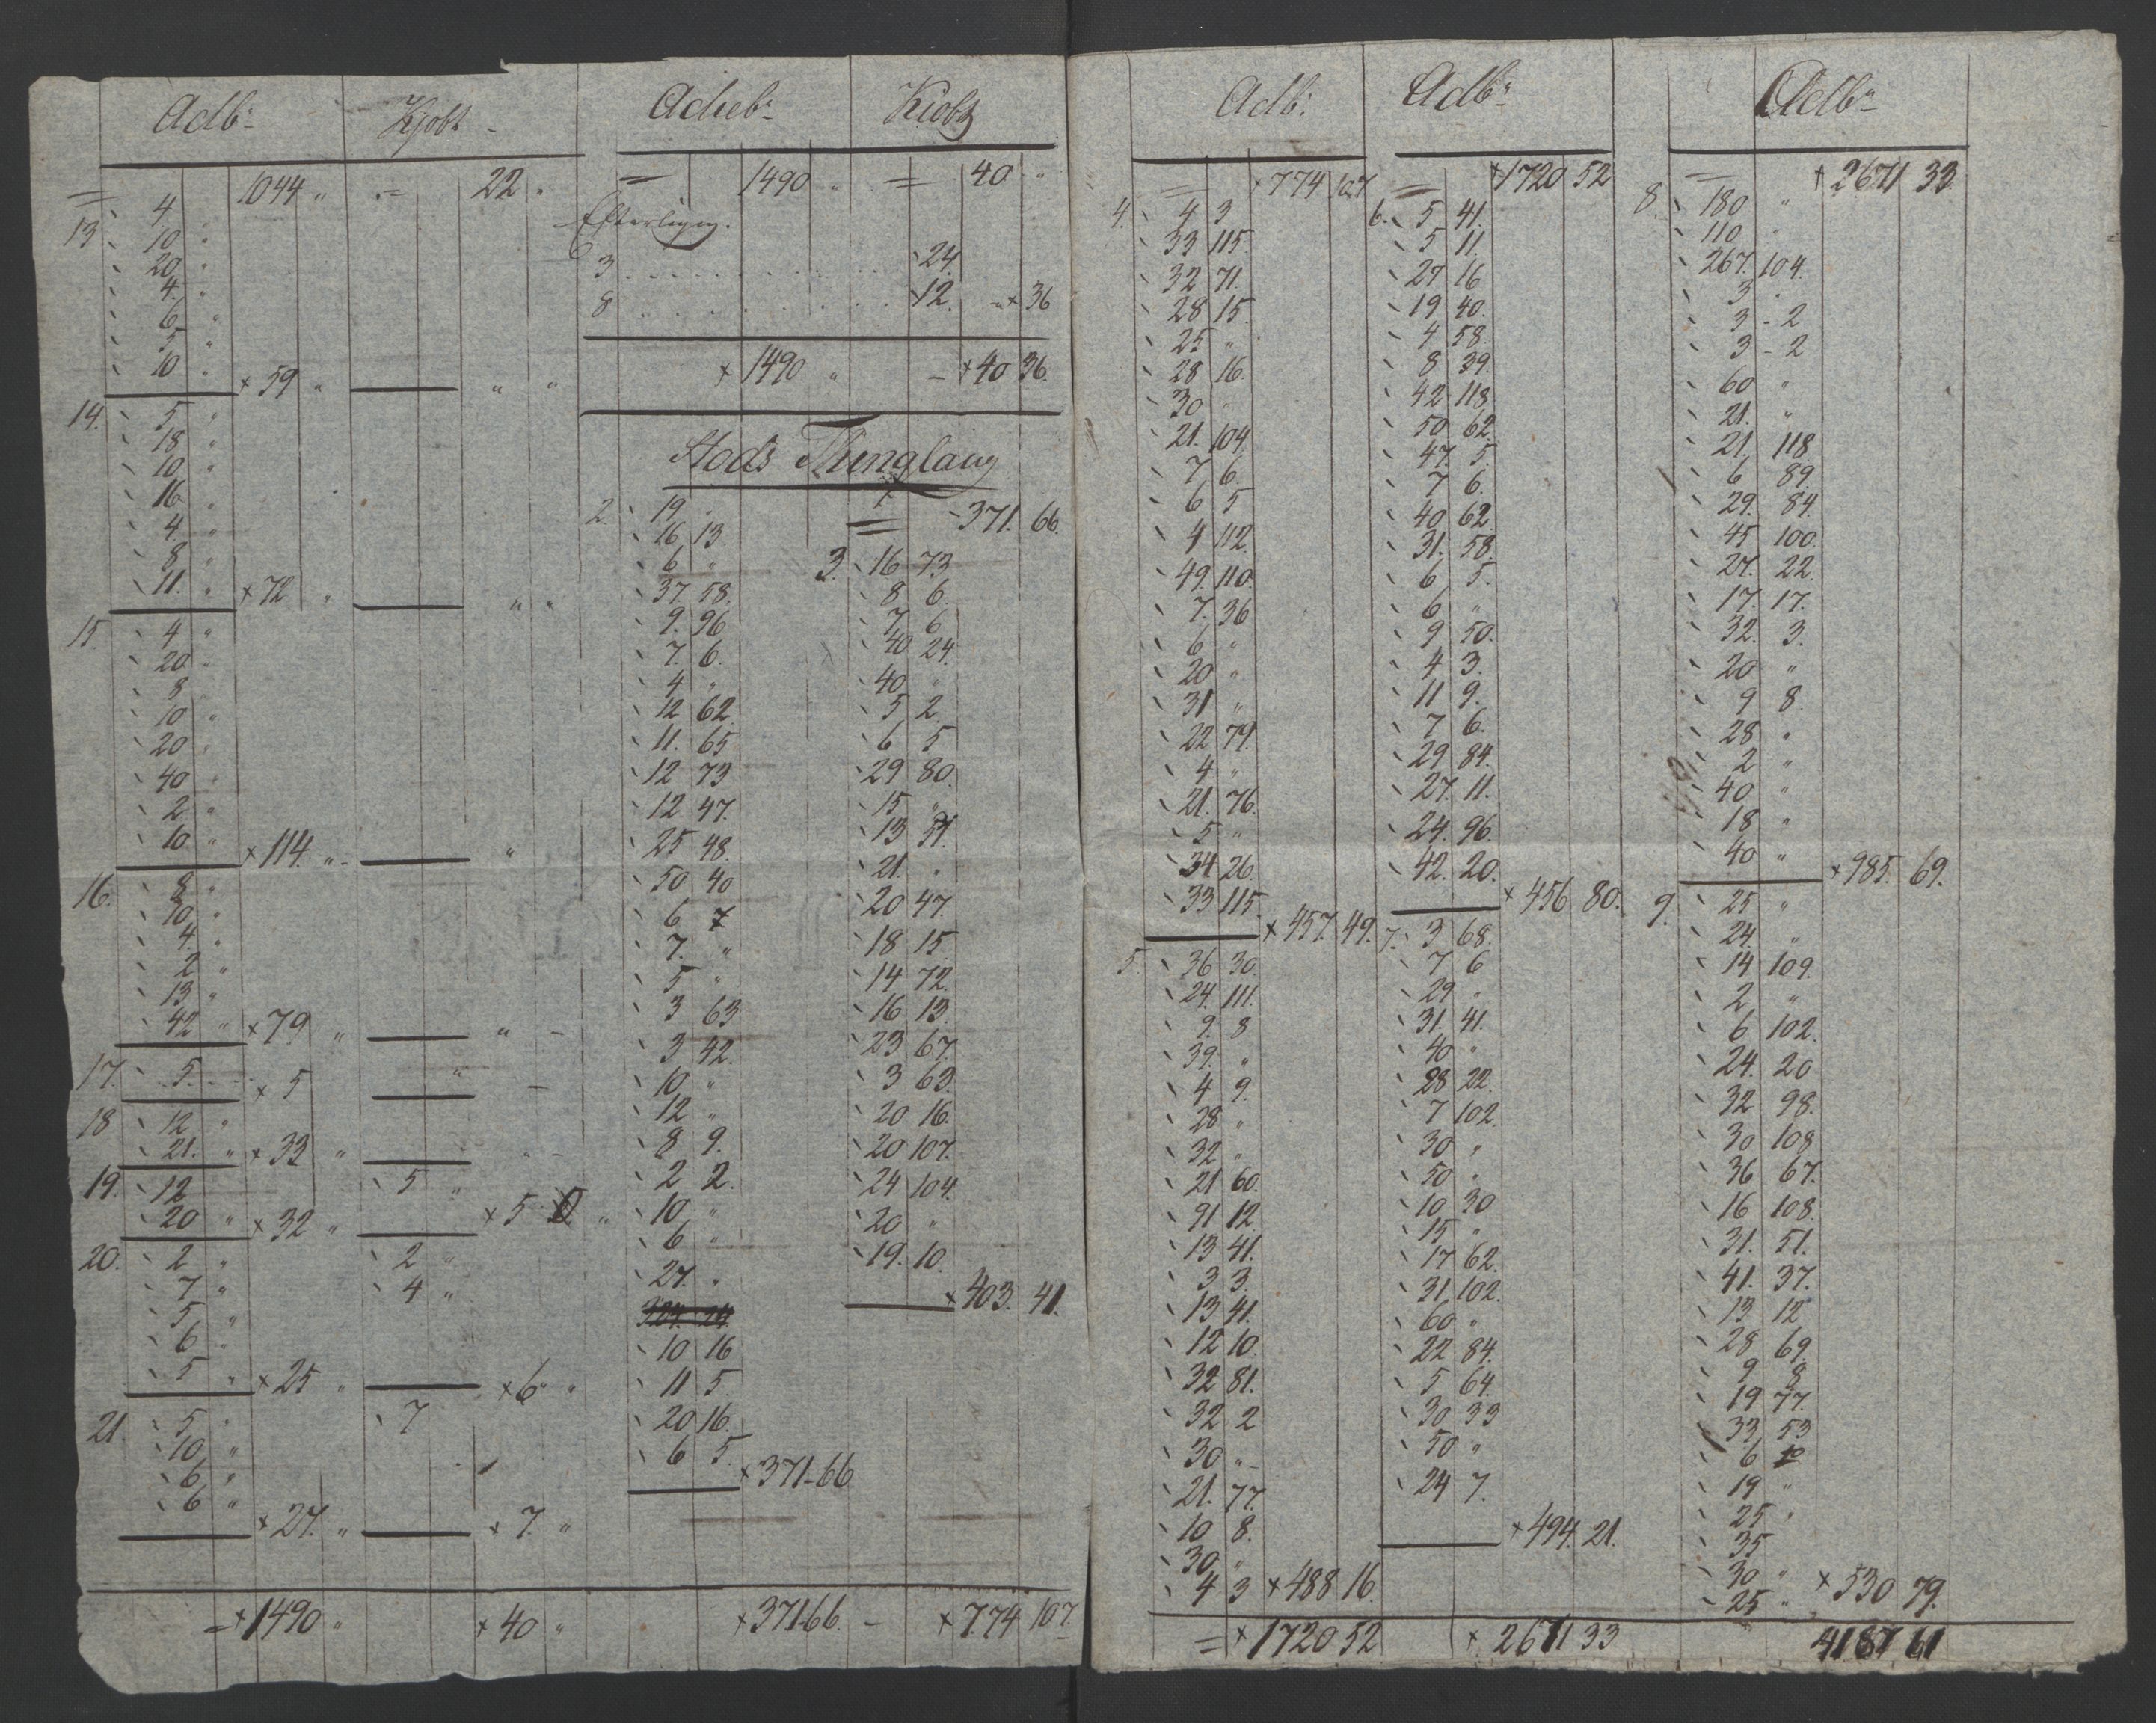 Adb. Kjobt
= 4 " 1044 " = 22 "
13 10 "
20 "
4 "
6 "
5 "
10 " × 59 " " "
14. 5 "
18 "
10 "
16 "
4 "
8 "
11. " × 72 " " "
15. 4 "
20 "
8 "
10 "
20 "
40 "
2 "
10 " × 114. " "
16. 8 "
10 "
4. "
2 "
13 "
42 " × 79 " " -
17. 5. × 5 "
18 12 "
21. " × 33 "
19. 12 5 "
20 " × 32 " × 5 "
20. 2 " 2 "
7 " 4 "
5 "
6 "
5 " × 25 " × 6 " "
21. 5 " 7
10 "
6 "
6 "
× 27. " × 7. "
= × 1490 " × 40 "
Kiobt
= 1490 " = 40 "
3 24.
8 12. - × 36
× 1490 " - × 40 36.
Stods Thinglaug
2. 19 "
16 13
6 "
37 58.
9. 96
7. 6.
4 "
12 62.
11. 65
12 73
12 47.
25 48.
50 40
6 7
7. "
5 "
3 63
3 42.
10 "
12 "
8 9.
2 2.
10 "
6 "
27. "
10 16
11 5
20 16
6 5.
× 371-66
× 371-66. -
= - 371. 66
3. 16 73
8 6.
7 6
40 24.
40 "
5 2
6 5
29 80.
15 "
13 51.
21. "
20 47.
18 15
14 72.
16 13.
23 67.
3 63.
20 16.
20 107.
24 104.
20 "
19. 10.
× 403. 41.
× 774 107.
Adb.
= × 774 107
4. 4 3
33 115.
32 71.
28 15.
25 "
28 16.
30 "
21. 104
7 6.
6 5
4 112.
49. 110
7. 36
6 "
20 "
31 "
22 79.
4 "
21. 76
5 "
34 26
33 115.
× 457. 49.
5. 36 30.
24. 111.
9. 8
39. "
4 9.
28 "
32 "
21 60.
91 12
13 41.
3 3.
13 41.
12 10.
32 81.
32 2
30 "
21. 77.
10 8.
30 "
4 3 × 488 16.
= × 1720 52
Adb.
= × 1720 52
6. 5 41.
5 11.
27 16
19 40.
4 58.
8 39.
42 118
50 62.
47. 5.
7 6.
40 62
31. 58.
6 5.
6 "
9 50.
4 3.
11 9.
7 6.
29 84.
27. 11.
24. 96.
42. 20.
× 456 80.
7. 3 68.
7 6
29 "
31. 41.
40 "
28 22.
7 102.
30 "
50 "
10 30
15 "
17 62.
31 102.
60 "
22 84.
5 64.
30 33
50 "
24 7.
× 494. 21.
× 2671 33
Adb.
= × 2671 33.
8. 180 "
110 "
267. 104.
3 "
3 - 2
3 - 2
60 "
21. "
21. 118.
6 89.
29. 84.
45 100.
27. 22.
17. 17.
32. 3.
20 "
9 8
28 "
2 "
40 "
18 "
40 "
× 985. 69.
9. 25 "
24. "
14 109.
2 "
6 102.
24. 20
32 98.
30 108
36 67.
16 108.
31. 51.
41. 37.
13 12
28 69.
9 8
19 77.
33 53
6 10
19 "
25 "
35
30 "
25 " × 530 79.
4187 61